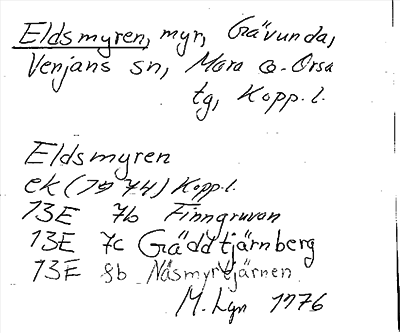 Eldsmyren, myr, Gävunda,
Venjans sn, Mora o. Orsa
tg, Kopp. l.
Eldsmyren
ek (1974) Kopp. l.
13E 7b Finngruvan
13E 7c Gäddtjärnberg
13E 8b Näsmyretjärnen
M. Lgn 1976